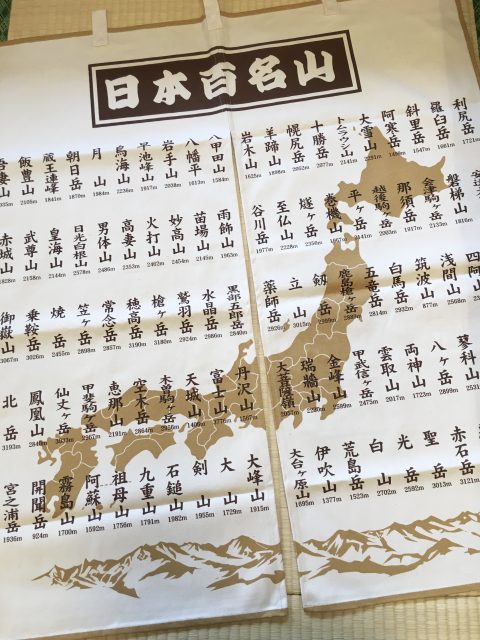 日本百名山
利尻岳 1721m
羅臼岳 1661m
斜里岳 1547m
阿寒岳 1499m
大雪山 2291m
トムラウシ山 2141m
十勝岳 2077m
幌尻岳 2052m
羊蹄山 1898m
岩木山 1625m
八甲田山 1584m
八幡平 1613m
岩手山 2038m
早池峰
鳥海山 2236m
月山 1984m
朝日岳 1870m
蔵王連峰 1841m
飯豊山 2105m
吾妻山 2035m
磐梯山 1816m
会津駒ヶ岳 2133m
那須岳
越後駒ヶ岳 2003m
平ヶ岳 2141m
巻機山 1967m
燧ヶ岳 2356m
至仏山 2228m
谷川岳 1977m
雨飾山 1963m
苗場山 2145m
妙高山 2454m
火打山 2462m
高妻山 2353m
男体山 2486m
日光白根山 2578m
皇海山 2144m
武尊山 2158m
赤城山 1828m
四阿山
浅間山 2568m
筑波山 877m
白馬岳 2932m
五竜岳 2814m
鹿島槍ヶ岳
剱岳
立山 3015m
薬師岳 2926m
黒部五郎岳 2840m
水晶岳 2986m
鷲羽岳 2924m
槍ヶ岳 3180m
穂高岳 3190m
常念岳 2857m
笠ヶ岳 2898m
焼岳 2455m
乗鞍岳 3026m
御嶽山 3067m
蓼科山
八ヶ岳 2899m
両神山 1723m
雲取山 2017m
甲武信ヶ岳 2475m
金峰山 2599m
瑞牆山
大菩薩嶺 2057m
丹沢山
富士山 3776m
天城山
木曽駒ヶ岳 2956m
空木岳 2864m
恵那山 2191m
甲斐駒ヶ岳 2967m
仙丈ヶ岳 3033m
鳳凰山
北岳 3193m
赤石岳 3121m
聖岳 3013m
光岳 2592m
白山 2702m
荒島岳 1523m
伊吹山 1377m
大台ヶ原山 1695m
大峰山 1915m
大山 1729m
剣山 1955m
石鎚山 1982m
九重山 1791m
祖母山 1756m
阿蘇山 1592m
霧島山 1700m
開聞岳 924m
宮之浦岳 1936m